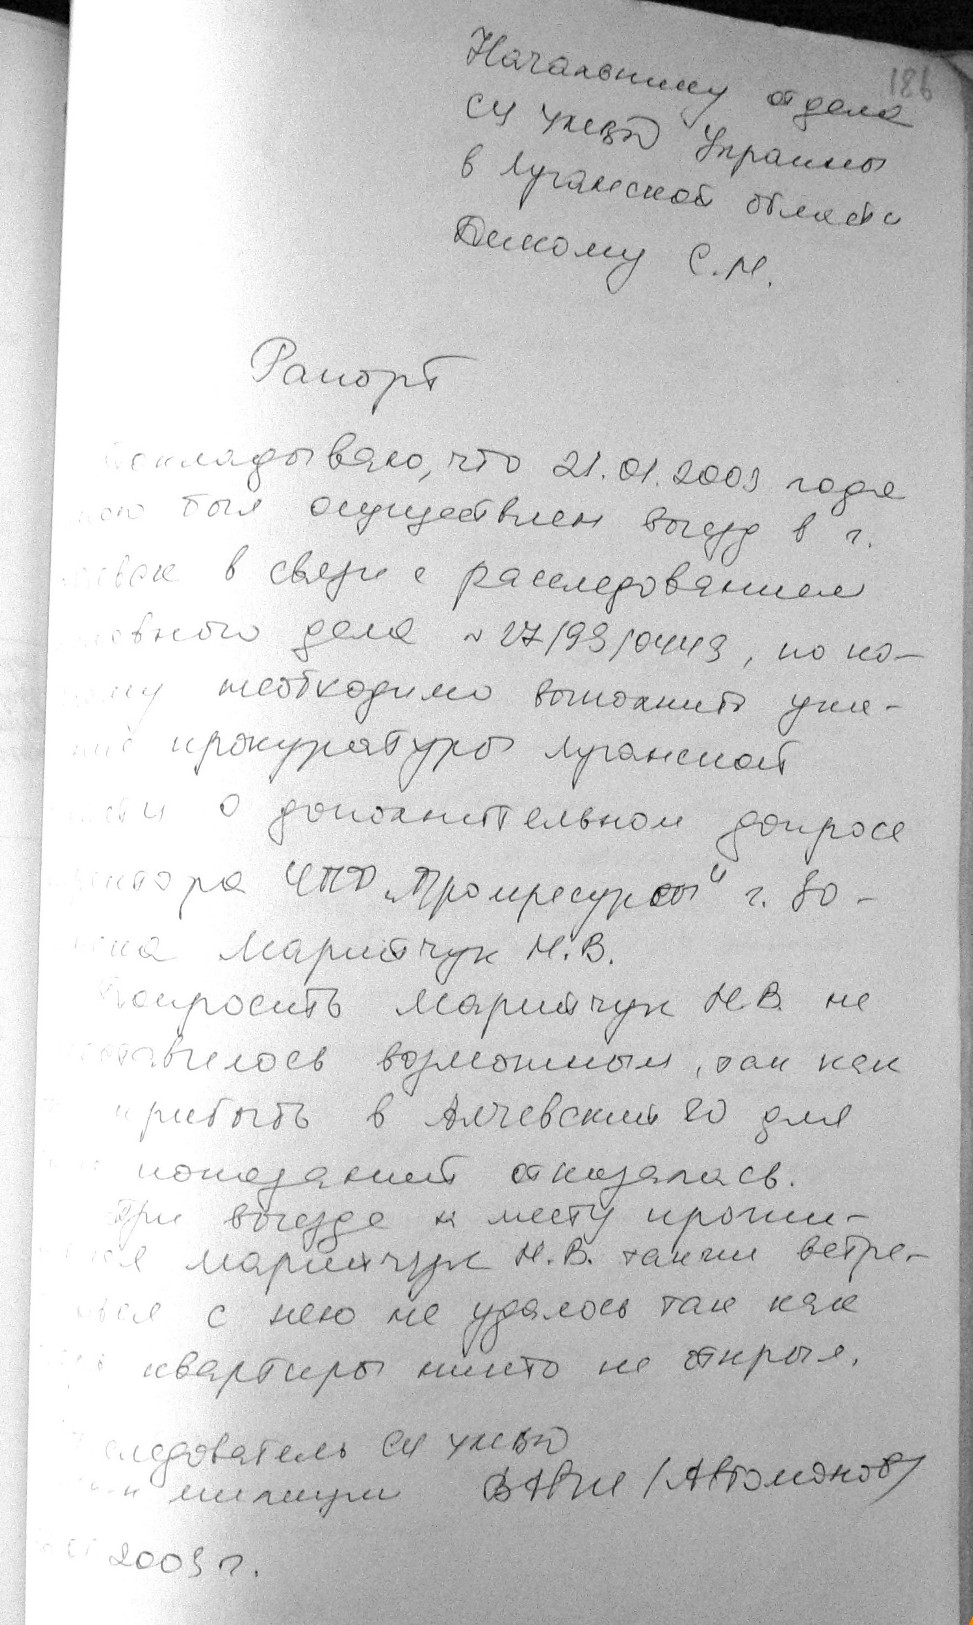 186
Начальнику отдела
СУ УМВД Украины
в Луганской области
Дикому С.М.
Рапорт
Докладываю, что 21.01.2003 года
мною был осуществлен выезд в г.
в связи с расследованием
дела № 27/93/0443, по ко-
необходимо выполнить ука-
прокуратуры Луганской
о дополнительном допросе
ЧПФ "Промресурсы" г.
Маритчук Н.В.
Допросить Маритчук Н.В. не
возможным, так как
прибыть в Алчевский ГО для
показаний отказалась.
При выезде к месту прожи-
Маритчук Н.В. также встре-
с нею не удалось так как
квартиры никто не открыл.
Следователь СУ УМВД
милиции (Автомонов)
2003 г.